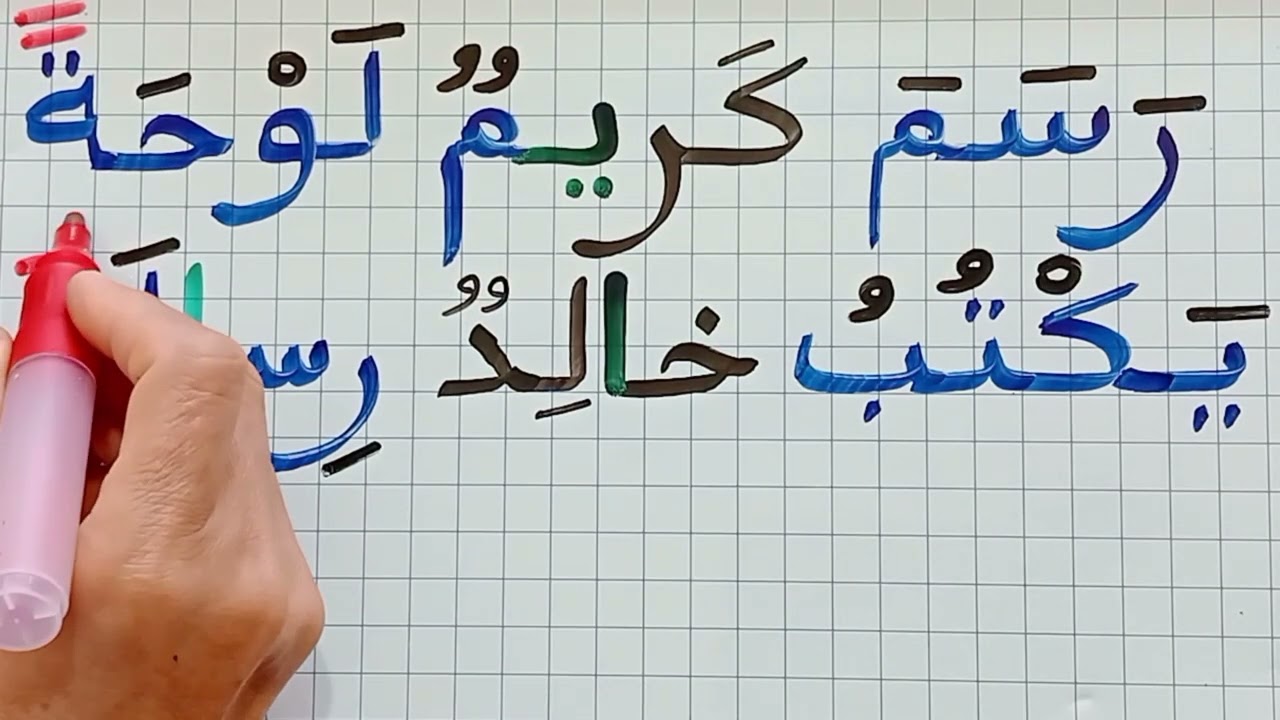 رَسَمَ كَريمٌ لَوْحَةً
يَكْتُبُ خالِدٌ